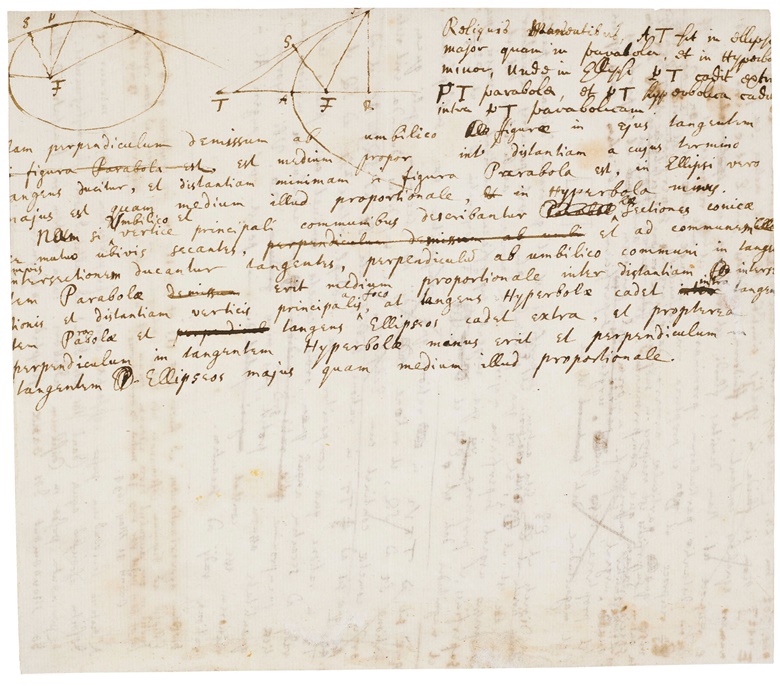 Reliquis Manentibus, AT fit in ellipsi
major quam in parabola, et in Hyperbo
minor, Unde in Ellipsi PT cadit extra
PT parabolæ, et PT hyperbolica cadit
intra PT parabolicam.
S F
S
T A F
tam perpendiculum demissum ab umbilico figuræ in ejus tangentem
si figura Parabola est, est medium propor int distantiam a cujus termino
angens ducitur, et distantiam minimam si figura Parabola est, in Ellipsi vero
majus est quam medium illud proportionale, et in Hyperbola minus.
Nam si Umbilico et vertice principali communibus describantur Sectiones conicæ
mutuo ubivis secantes, perpendiculum demissum ab umb et ad communem
ntersectionem ducantur tangentes, perpendiculū ab umbilico communi in tange
tem Parabolæ demissum erit medium proportionale inter distantiam intersec
tionis et distantiam verticis principalis a foco, at tangens Hyperbolæ cadet intra tangen
tem Parabolæ et tangens Ellipseos cadet extra, et propterea
perpendiculum in tangentem Hyperbolæ minus erit et perpendiculum
tangentem Ellipseos majus quam medium illud proportionale.